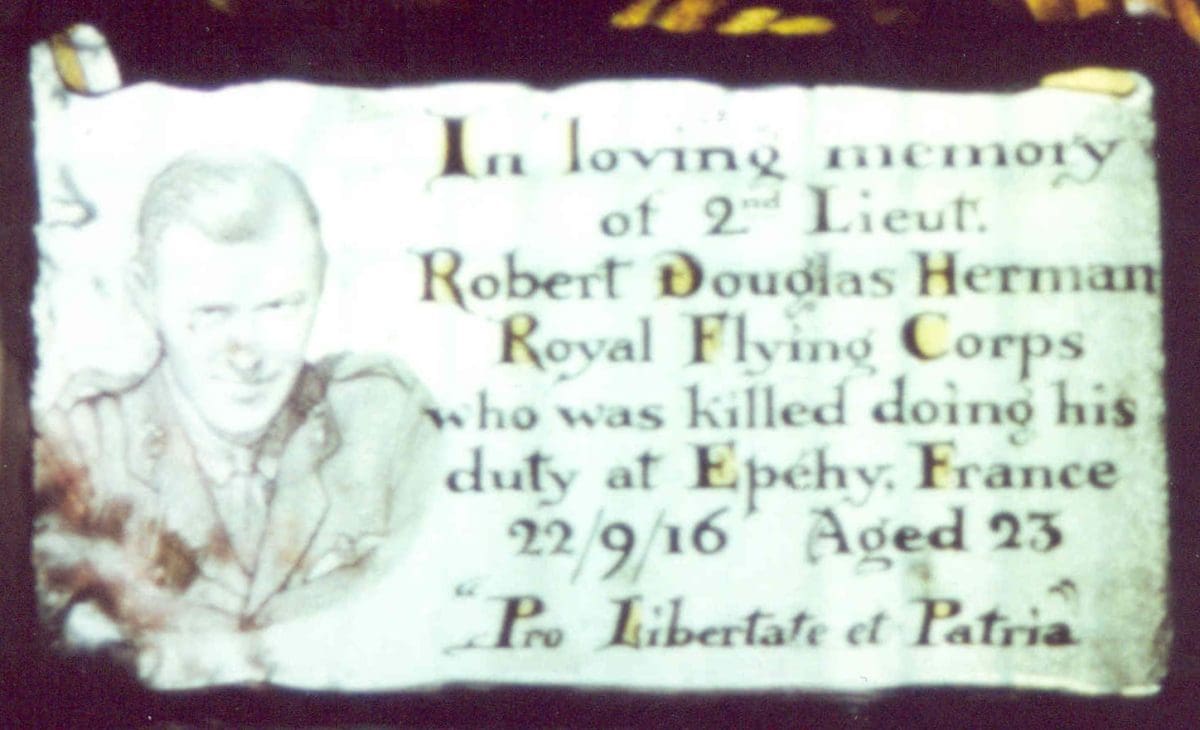 In loving memory
of 2nd Lieut.
Robert Douglas Herman
Royal Flying Corps
who was killed doing his
duty at Epéhy. France
22/9/16 Aged 23
"Pro Libertate et Patria"